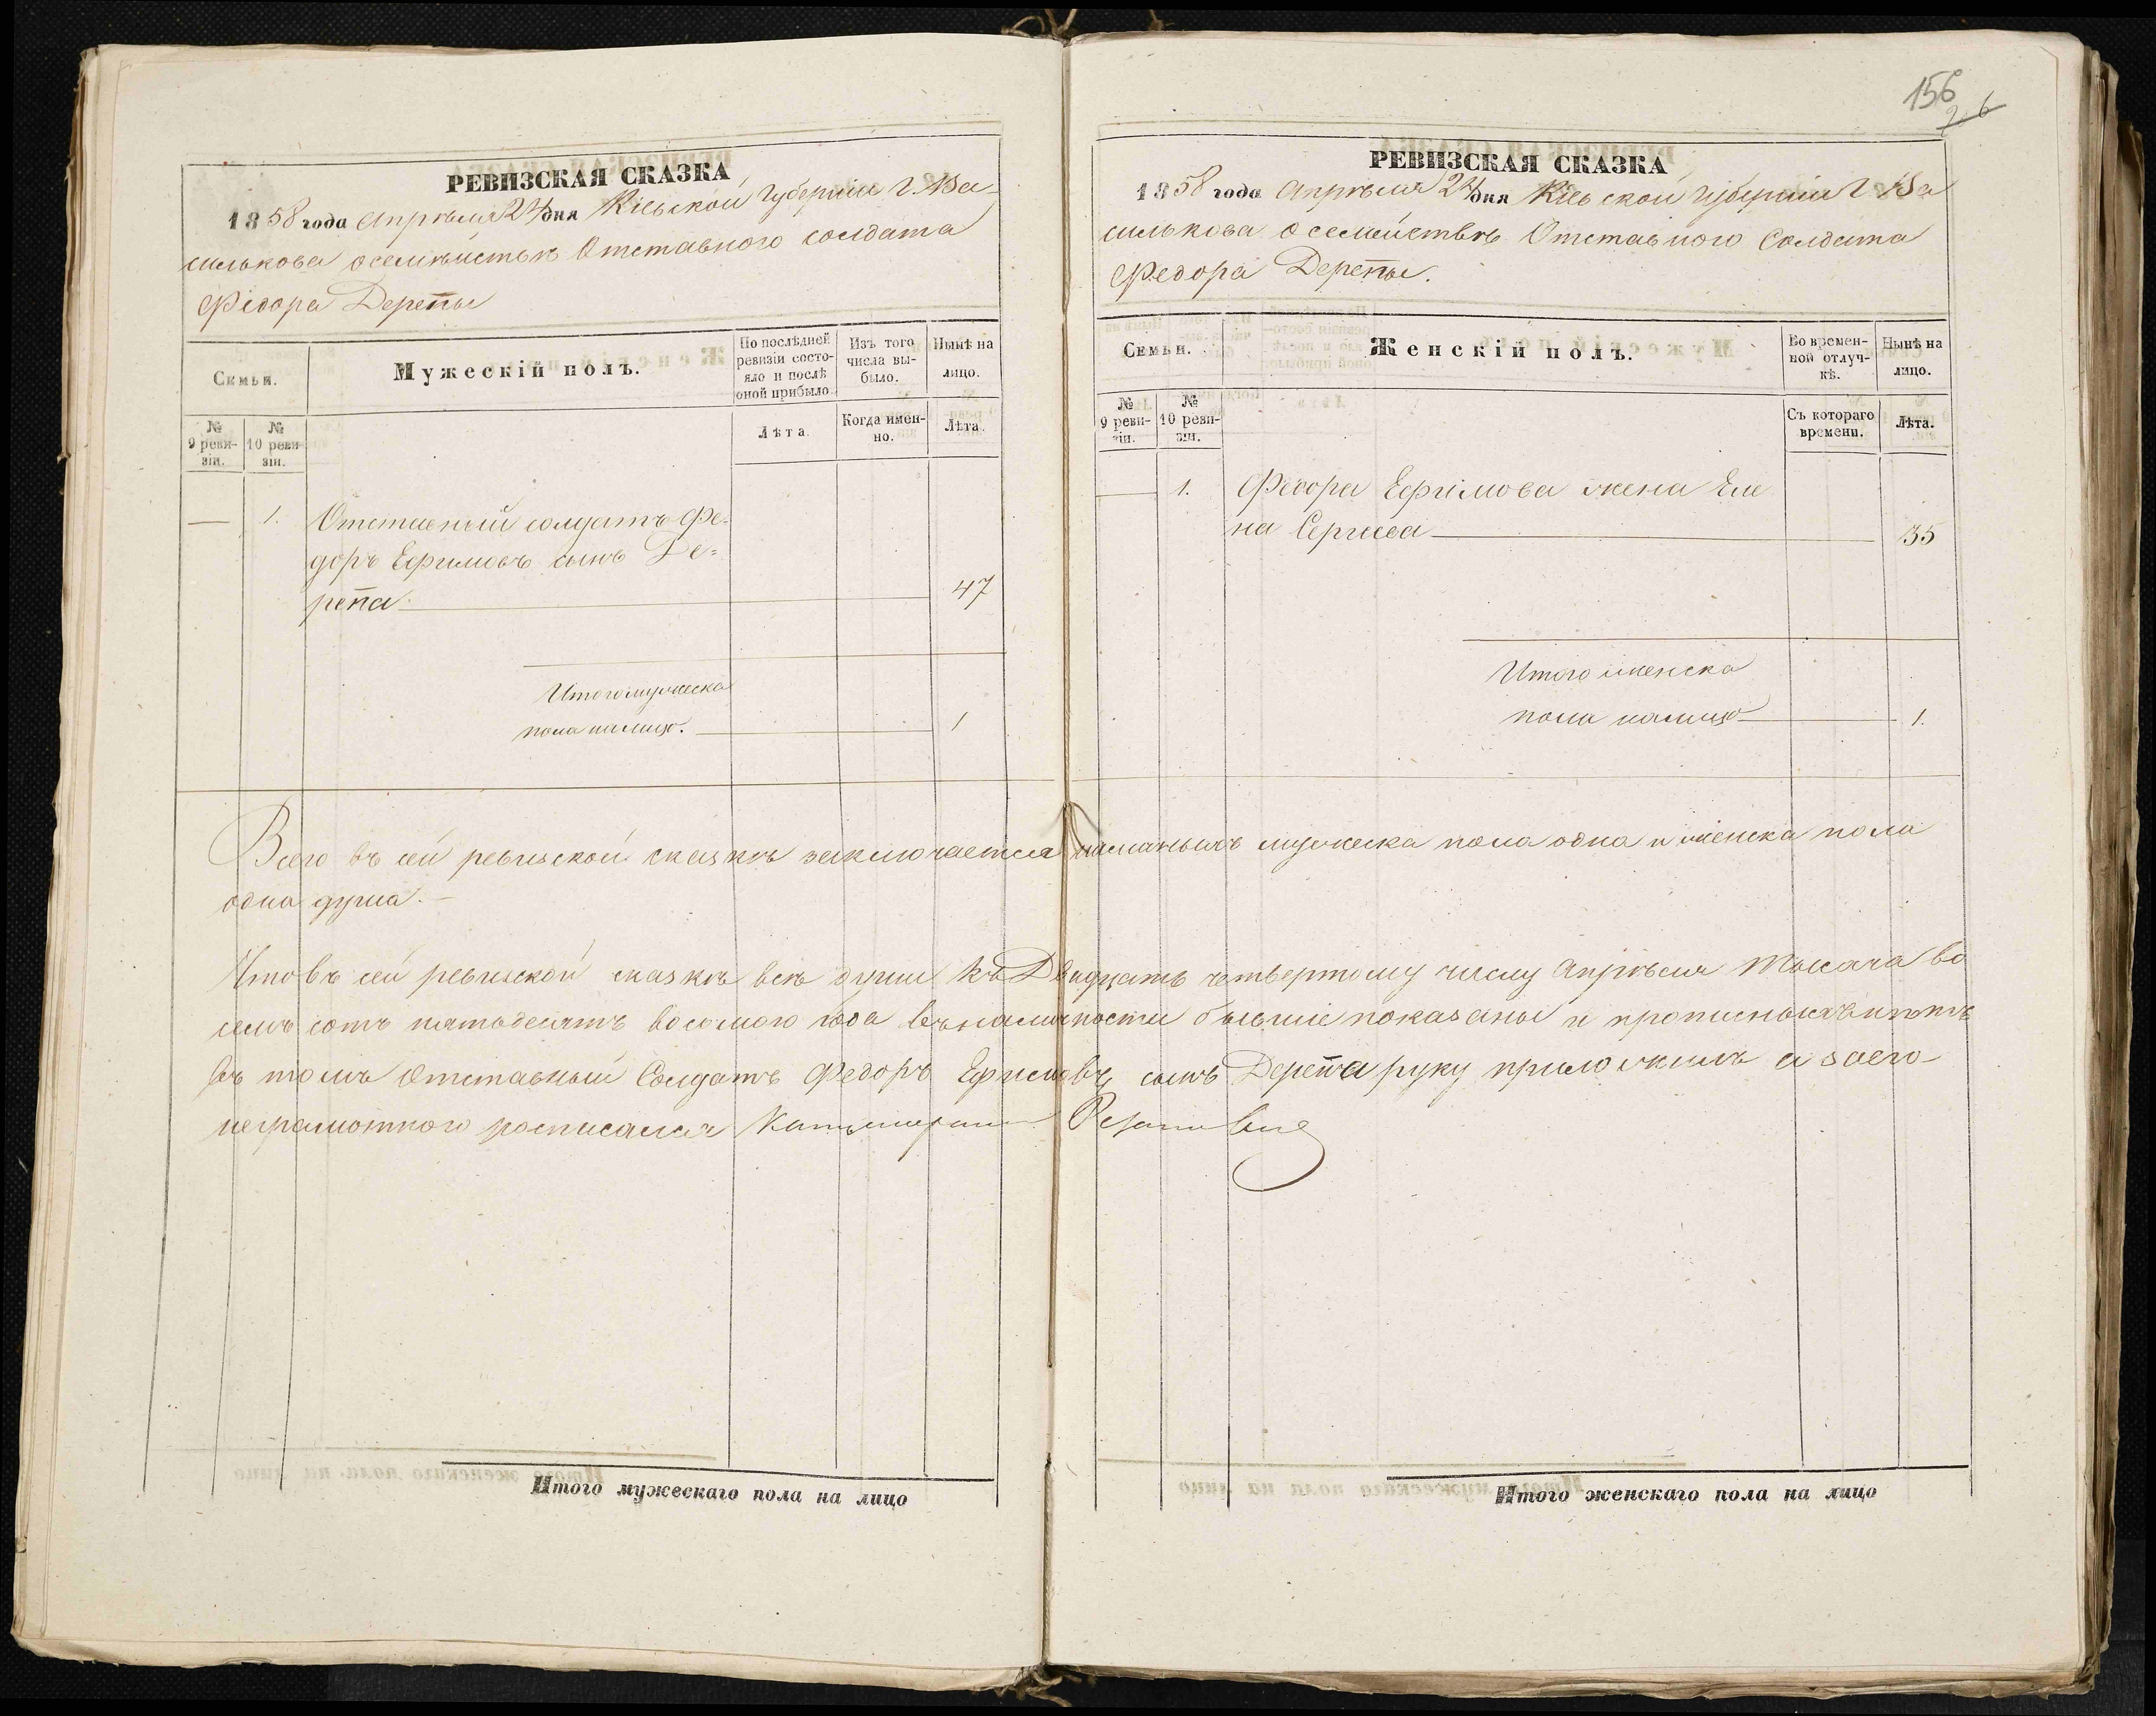 156
26
РЕВИЗСКАЯ СКАЗКА
1858 года Апрѣля 24 дня Кіевской Губерніи Г. Ва-
силькова о семѣйствѣ Отставного солдата
Федора Дерепы
Семьи.
Мужескій полъ.
По послѣдней ревизіи состояло и послѣ оной прибыло.
Изъ того числа выбыло.
Нынѣ на лицо.
№ 9 ревизіи.
№ 10 ревизіи.
Лѣта.
Когда именно.
Лѣта.
— 1. Отставный солдатъ Фе-
доръ Ефимовъ сынъ Де=
репа 47
Итого мужеска
пола налицо. 1
РЕВИЗСКАЯ СКАЗКА
1858 года Апрѣля 24 дня Кіевской Губерніи Г Ва
силькова о семействѣ Отставного Солдата
Федора Дерепы.
Семьи.
Женскій полъ.
Во временной отлучкѣ.
Нынѣ на лицо.
№ 9 ревизіи.
№ 10 ревизіи.
Съ котораго времени.
Лѣта.
— 1. Федора Ефимова жена Еле
на Сергиева 35
Итого женска
пола налицо 1.
Всего въ сей ревизской сказкѣ заключается мужеска пола одна и женска пола
одна душа.—
Что въ сей ревизской сказкѣ всѣ души къ Двадцать четвертому числу Апрѣля тысяча во
семъ сотъ пятьдесятъ восьмого года въ наличности бывшіе показаны и прописныхъ нѣтъ
въ томъ Отставный Солдатъ Федоръ Ефимовъ сынъ Дерепа руку приложилъ а за его
неграмотного росписался
Итого мужескаго пола на лицо
Итого женскаго пола на лицо